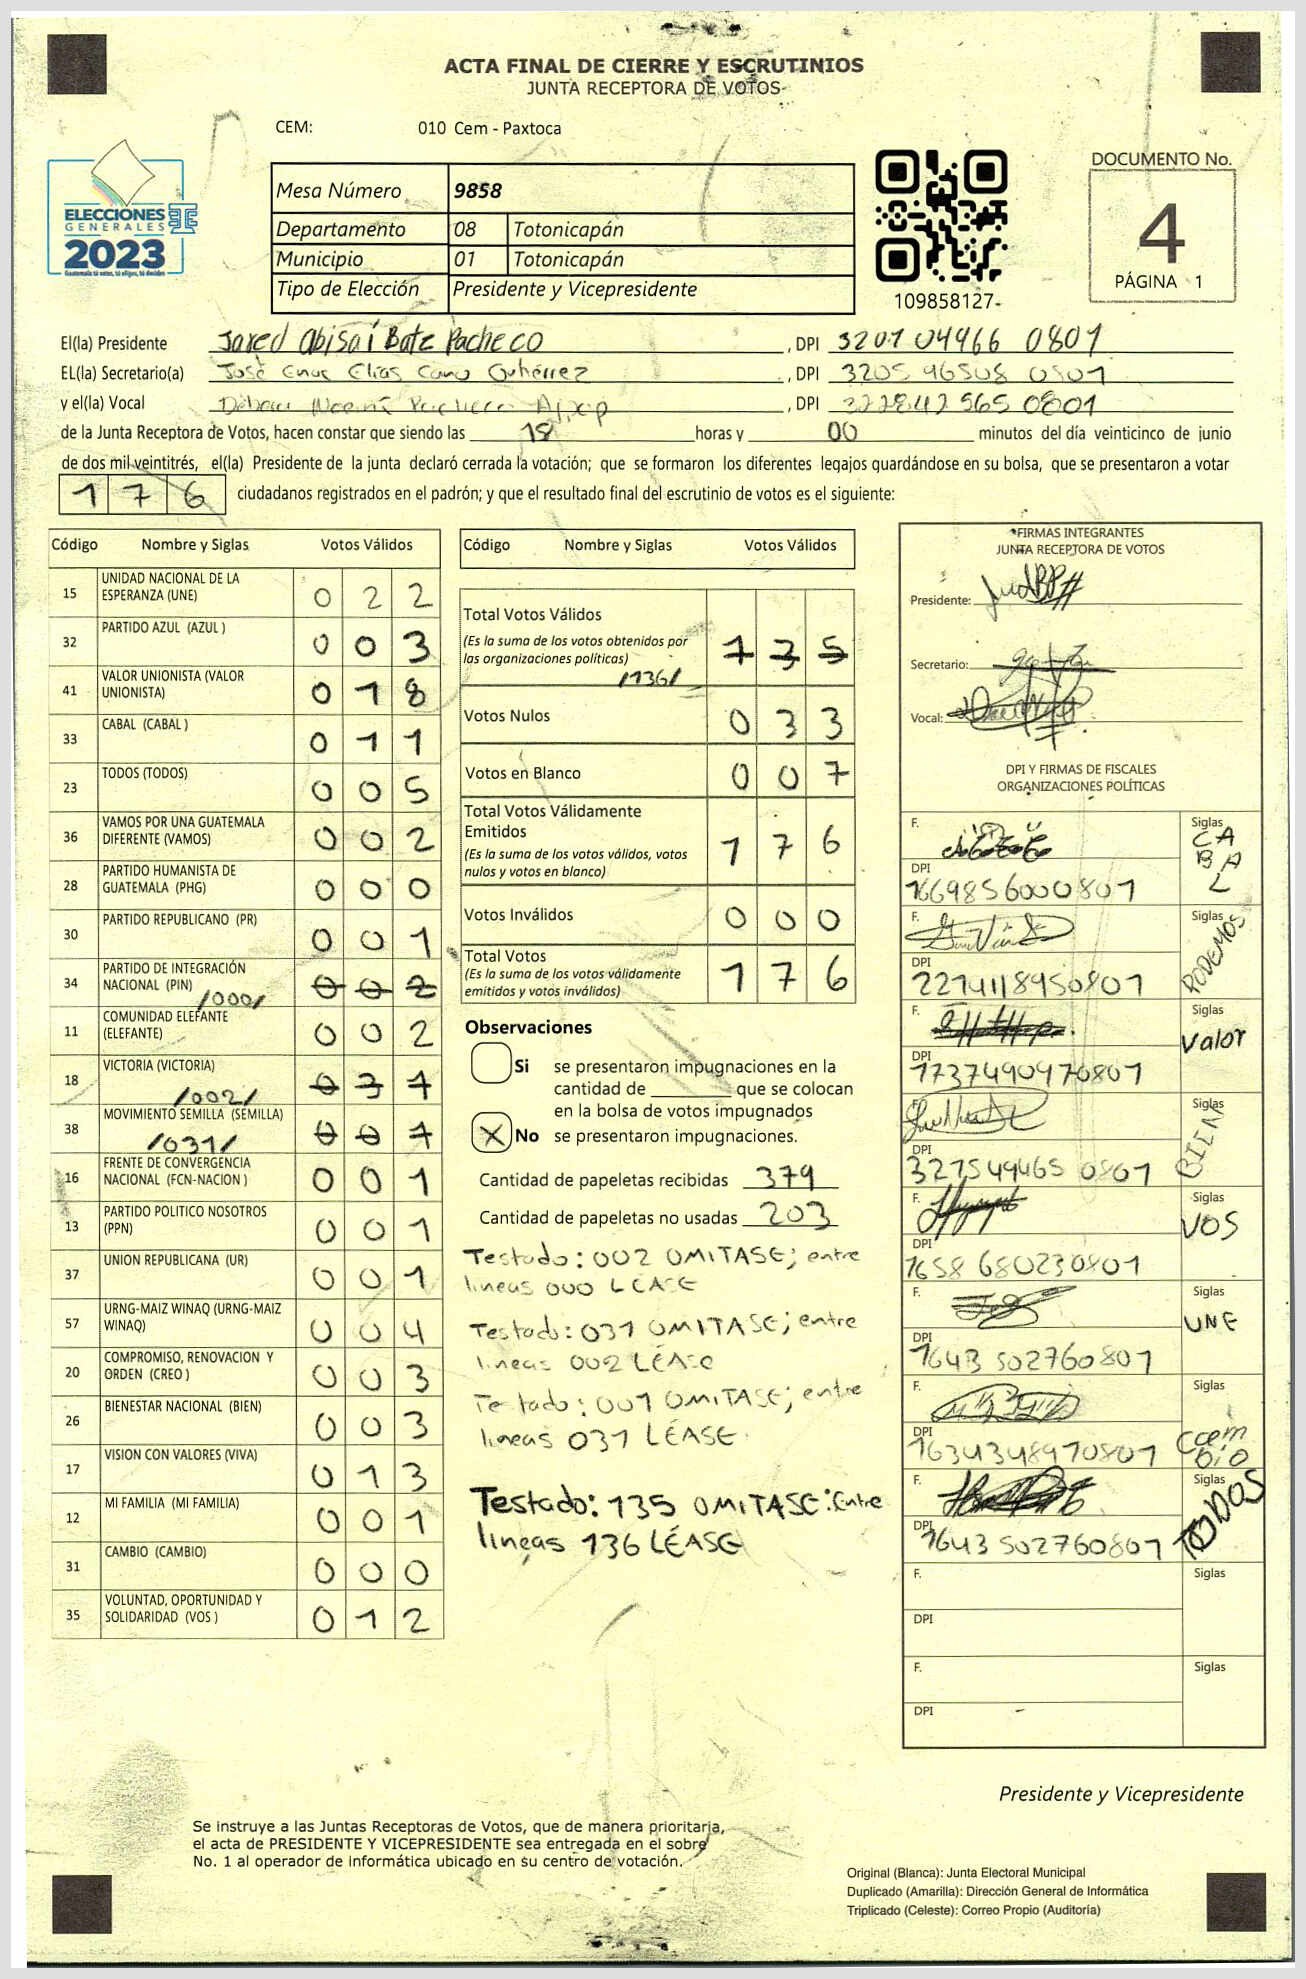 ACTA FINAL DE CIERRE Y ESCRUTINIOS
JUNTA RECEPTORA DE VOTOS
CEM: 010 Cem - Paxtoca
ELECCIONES
GENERALES
2023
Guatemala tú votas, tú eliges, tú decides
Mesa Número 9858
Departamento 08 Totonicapán
Municipio 01 Totonicapán
Tipo de Elección Presidente y Vicepresidente
109858127-
DOCUMENTO No.
4
PÁGINA 1
El(la) Presidente Jared Abisaí Batz Pacheco, DPI 3201 04966 0801
EL(la) Secretario(a) José Elías Cano Gutiérrez, DPI 3205 96508 0801
y el(la) Vocal Pacheco, DPI 322842565 0801
de la Junta Receptora de Votos, hacen constar que siendo las 18 horas y 00 minutos del día veinticinco de junio
de dos mil veintitrés, el(la) Presidente de la junta declaró cerrada la votación; que se formaron los diferentes legajos guardándose en su bolsa, que se presentaron a votar
176 ciudadanos registrados en el padrón; y que el resultado final del escrutinio de votos es el siguiente:
Código Nombre y Siglas Votos Válidos
15 UNIDAD NACIONAL DE LA ESPERANZA (UNE) 022
32 PARTIDO AZUL (AZUL ) 003
41 VALOR UNIONISTA (VALOR UNIONISTA) 018
33 CABAL (CABAL ) 011
23 TODOS (TODOS) 005
36 VAMOS POR UNA GUATEMALA DIFERENTE (VAMOS) 002
28 PARTIDO HUMANISTA DE GUATEMALA (PHG) 000
30 PARTIDO REPUBLICANO (PR) 001
34 PARTIDO DE INTEGRACIÓN NACIONAL (PIN) /000/ 002
11 COMUNIDAD ELEFANTE (ELEFANTE) 002
18 VICTORIA (VICTORIA) /002/ 031
38 MOVIMIENTO SEMILLA (SEMILLA) /031/ 001
16 FRENTE DE CONVERGENCIA NACIONAL (FCN-NACION ) 001
13 PARTIDO POLITICO NOSOTROS (PPN) 001
37 UNION REPUBLICANA (UR) 001
57 URNG-MAIZ WINAQ (URNG-MAIZ WINAQ) 004
20 COMPROMISO, RENOVACION Y ORDEN (CREO ) 003
26 BIENESTAR NACIONAL (BIEN) 003
17 VISION CON VALORES (VIVA) 013
12 MI FAMILIA (MI FAMILIA) 001
31 CAMBIO (CAMBIO) 000
35 VOLUNTAD, OPORTUNIDAD Y SOLIDARIDAD (VOS ) 012
Código Nombre y Siglas Votos Válidos
Total Votos Válidos
(Es la suma de los votos obtenidos por
las organizaciones políticas) 135
/136/
Votos Nulos 033
Votos en Blanco 007
Total Votos Válidamente
Emitidos
(Es la suma de los votos válidos, votos
nulos y votos en blanco) 176
Votos Inválidos 000
Total Votos
(Es la suma de los votos válidamente
emitidos y votos inválidos) 176
Observaciones
Si se presentaron impugnaciones en la
cantidad de ________ que se colocan
en la bolsa de votos impugnados
X No se presentaron impugnaciones.
Cantidad de papeletas recibidas 379
Cantidad de papeletas no usadas 203
Testado: 002 OMITASE; entre
lineas 000 LÉASE
Testado: 031 OMITASE; entre
lineas 002 LÉASE
Testado: 001 OMITASE; entre
lineas 031 LÉASE.
Testado: 135 OMITASE: Entre
lineas 136 LÉASE
FIRMAS INTEGRANTES
JUNTA RECEPTORA DE VOTOS
Presidente:
Secretario:
Vocal:
DPI Y FIRMAS DE FISCALES
ORGANIZACIONES POLÍTICAS
F. Siglas CABAL
DPI 1669856000801
F. Siglas PODEMOS
DPI 2274118950801
F. Siglas Valor
DPI 1737490970801
F. Siglas BIEN
DPI 327549465 0801
F. Siglas VOS
DPI 1658 680230801
F. Siglas UNE
DPI 1643 502760801
F. Siglas
DPI 1634348970801
F. Siglas TODOS
DPI 1643 502760801
F. Siglas
DPI
F. Siglas
DPI
Presidente y Vicepresidente
Se instruye a las Juntas Receptoras de Votos, que de manera prioritaria,
el acta de PRESIDENTE Y VICEPRESIDENTE sea entregada en el sobre
No. 1 al operador de informática ubicado en su centro de votación.
Original (Blanca): Junta Electoral Municipal
Duplicado (Amarilla): Dirección General de Informática
Triplicado (Celeste): Correo Propio (Auditoría)